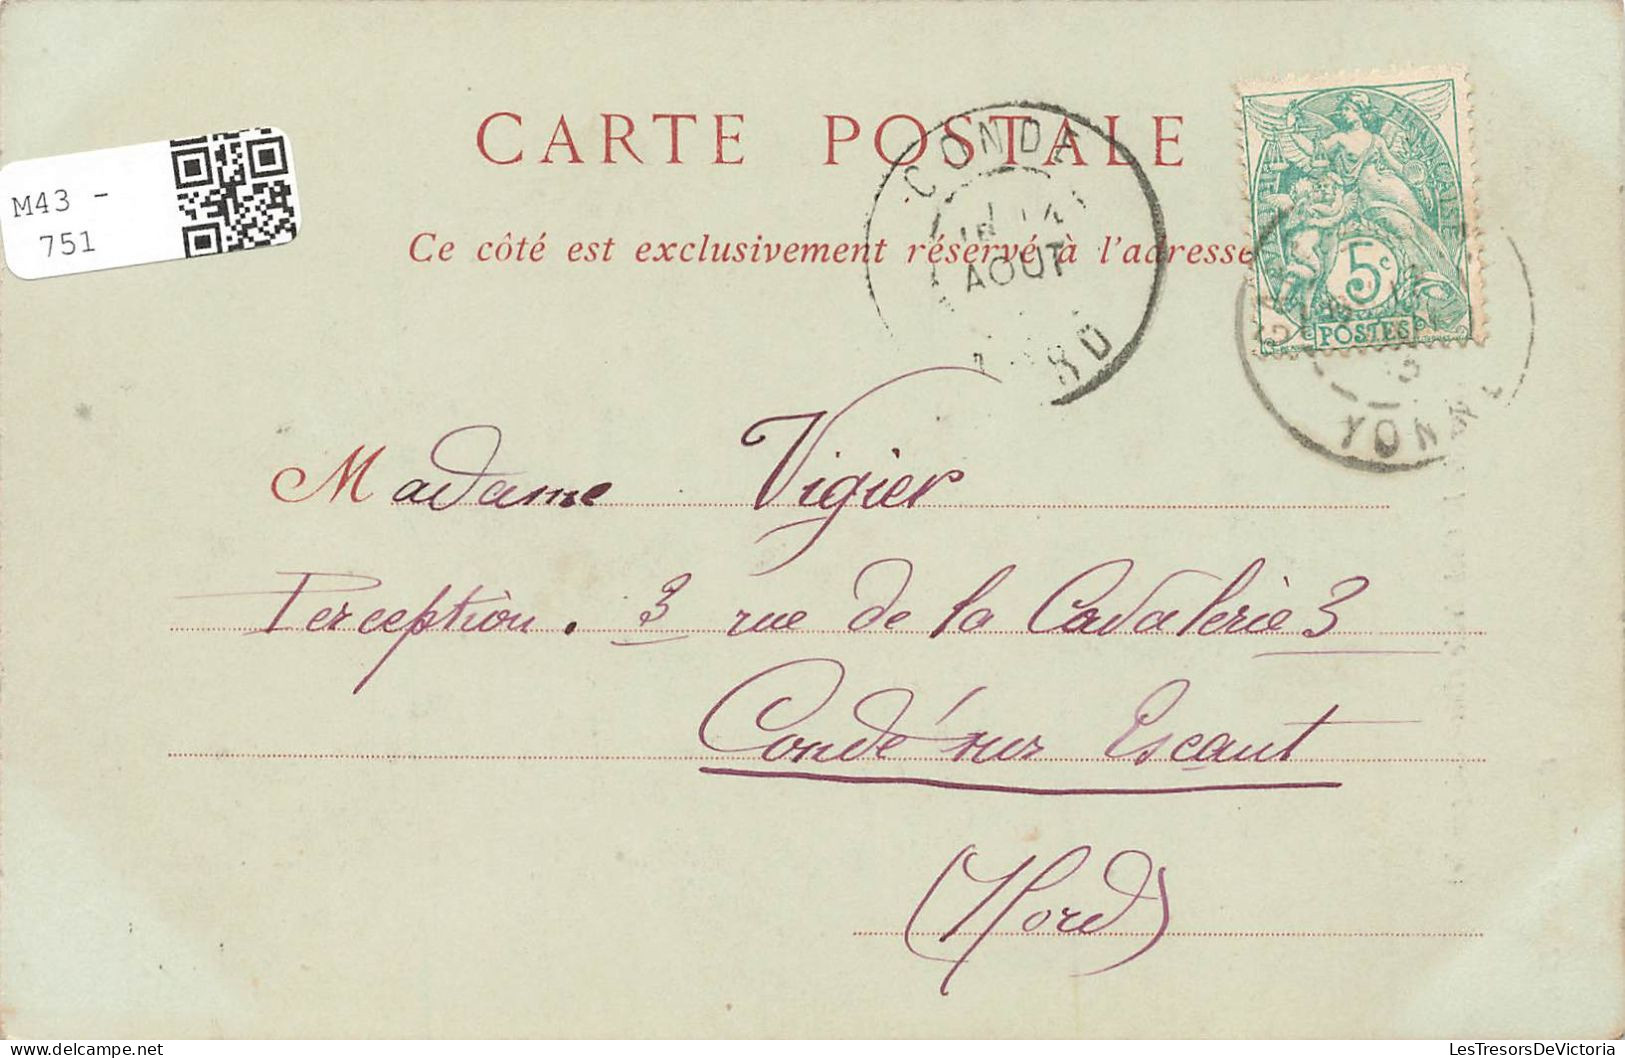 CARTE POSTALE
Ce côté est exclusivement réservé à l'adresse
M43 -
751
CONDE
AOUT
FRANÇAISE
5c
POSTES
YONNE
Madame Vigier
Perception. 3 rue de la Cavalerie 3
Condé sur Escaut
(Nord)
LesTresorsDeVictoria